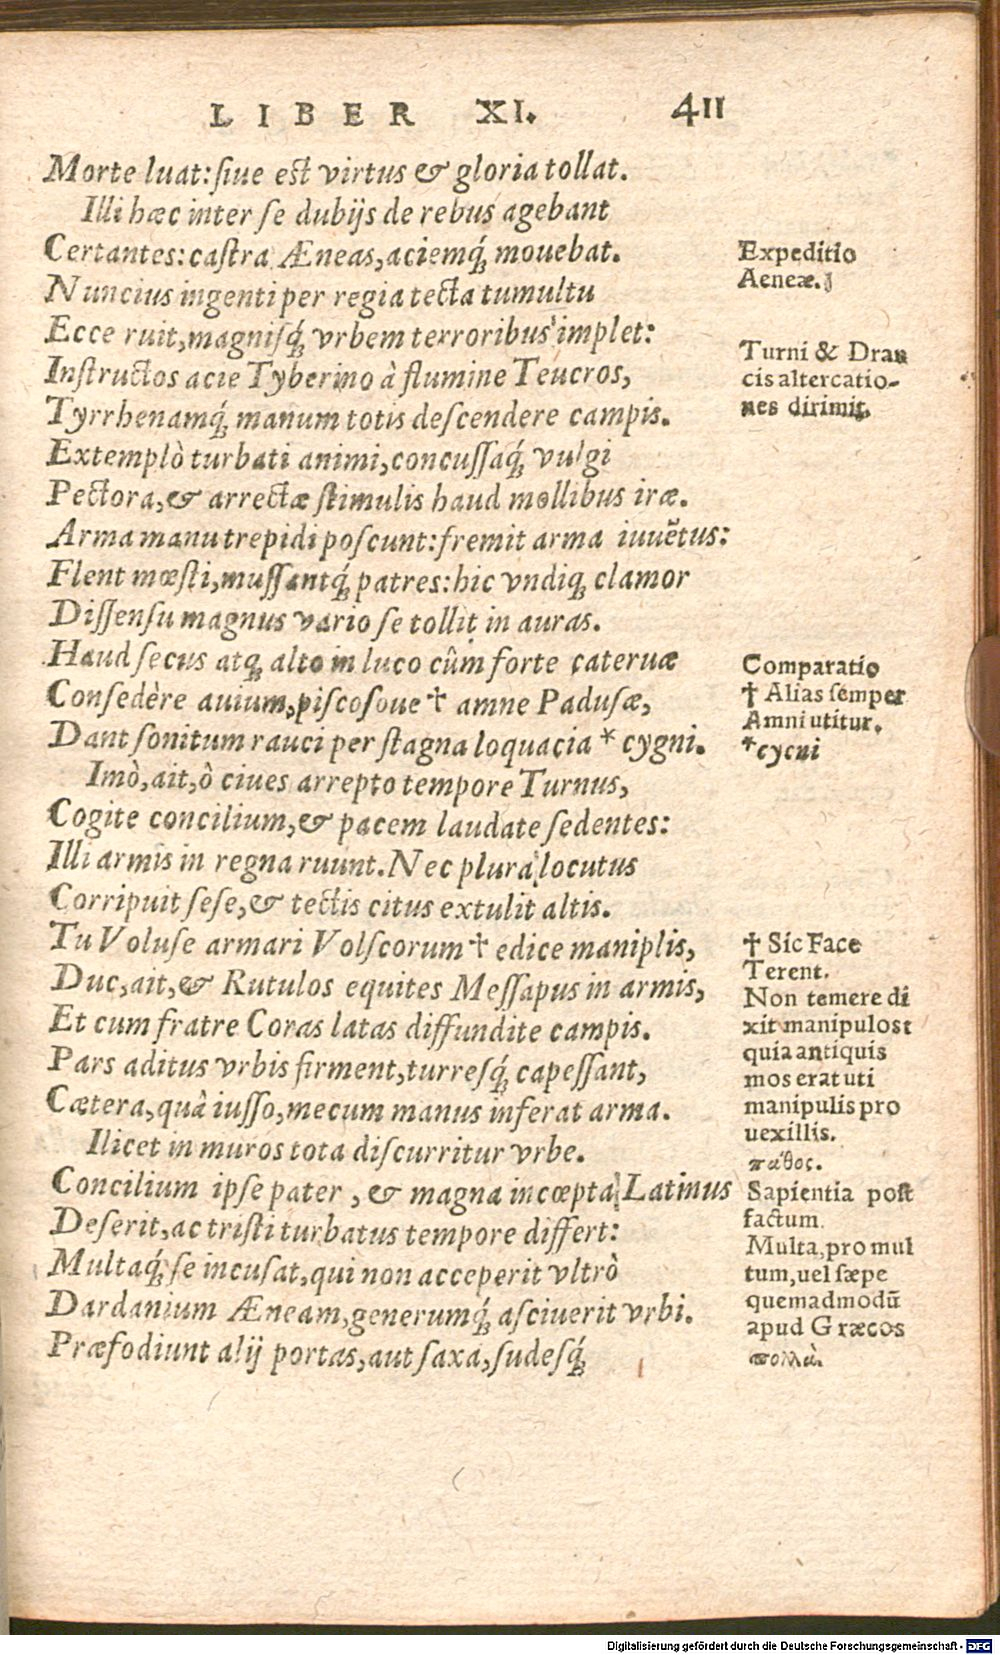 LIBER XI. 411
Morte luat: ſiue est virtus & gloria tollat.
Illi hæc inter ſe dubijs de rebus agebant
Certantes: caſtra Æneas, aciemq́; mouebat.
Nuncius ingenti per regia tecta tumultu
Ecce ruit, magniſq́; vrbem terroribus implet:
Inſtructos acie Tyberino à flumine Teucros,
Tyrrhenamq́; manum totis deſcendere campis.
Extemplò turbati animi, concuſſaq́; vulgi
Pectora, & arrectæ ſtimulis haud mollibus iræ.
Arma manu trepidi poſcunt: fremit arma iuuẽtus:
Flent mœſti, muſſantq́; patres: hic vndiq; clamor
Diſſenſu magnus vario ſe tollit in auras.
Haud ſecus atq; alto in luco cûm forte cateruæ
Conſedère auium, piſcoſoue † amne Paduſæ,
Dant ſonitum rauci per ſtagna loquacia * cygni.
Imò, ait, ô ciues arrepto tempore Turnus,
Cogite concilium, & pacem laudate ſedentes:
Illi armis in regna ruunt. Nec plura locutus
Corripuit ſeſe, & tectis citus extulit altis.
Tu Voluſe armari Volſcorum † edice maniplis,
Duc, ait, & Rutulos equites Meſſapus in armis,
Et cum fratre Coras latas diffundite campis.
Pars aditus vrbis firment, turreſq́; capeſſant,
Cætera, quà iuſſo, mecum manus inferat arma.
Ilicet in muros tota diſcurritur vrbe.
Concilium ipſe pater, & magna incœpta Latinus
Deſerit, ac triſti turbatus tempore differt:
Multaq́; ſe incuſat, qui non acceperit vltrò
Dardanium Æneam, generumq́; aſciuerit vrbi.
Præfodiunt alij portas, aut ſaxa, ſudeſq́;
Expeditio
Aeneæ.
Turni & Dran
cis altercatio-
nes dirimit.
Comparatio
† Alias ſemper
Amni utitur.
*cycni
† Sic Face
Terent.
Non temere di
xit manipulos:
quia antiquis
mos erat uti
manipulis pro
uexillis.
πάθος.
Sapientia poſt
factum.
Multa, pro mul
tum, uel ſæpe
quemadmodũ
apud Græcos
πολλὰ.
Digitalisierung gefördert durch die Deutsche Forschungsgemeinschaft - DFG